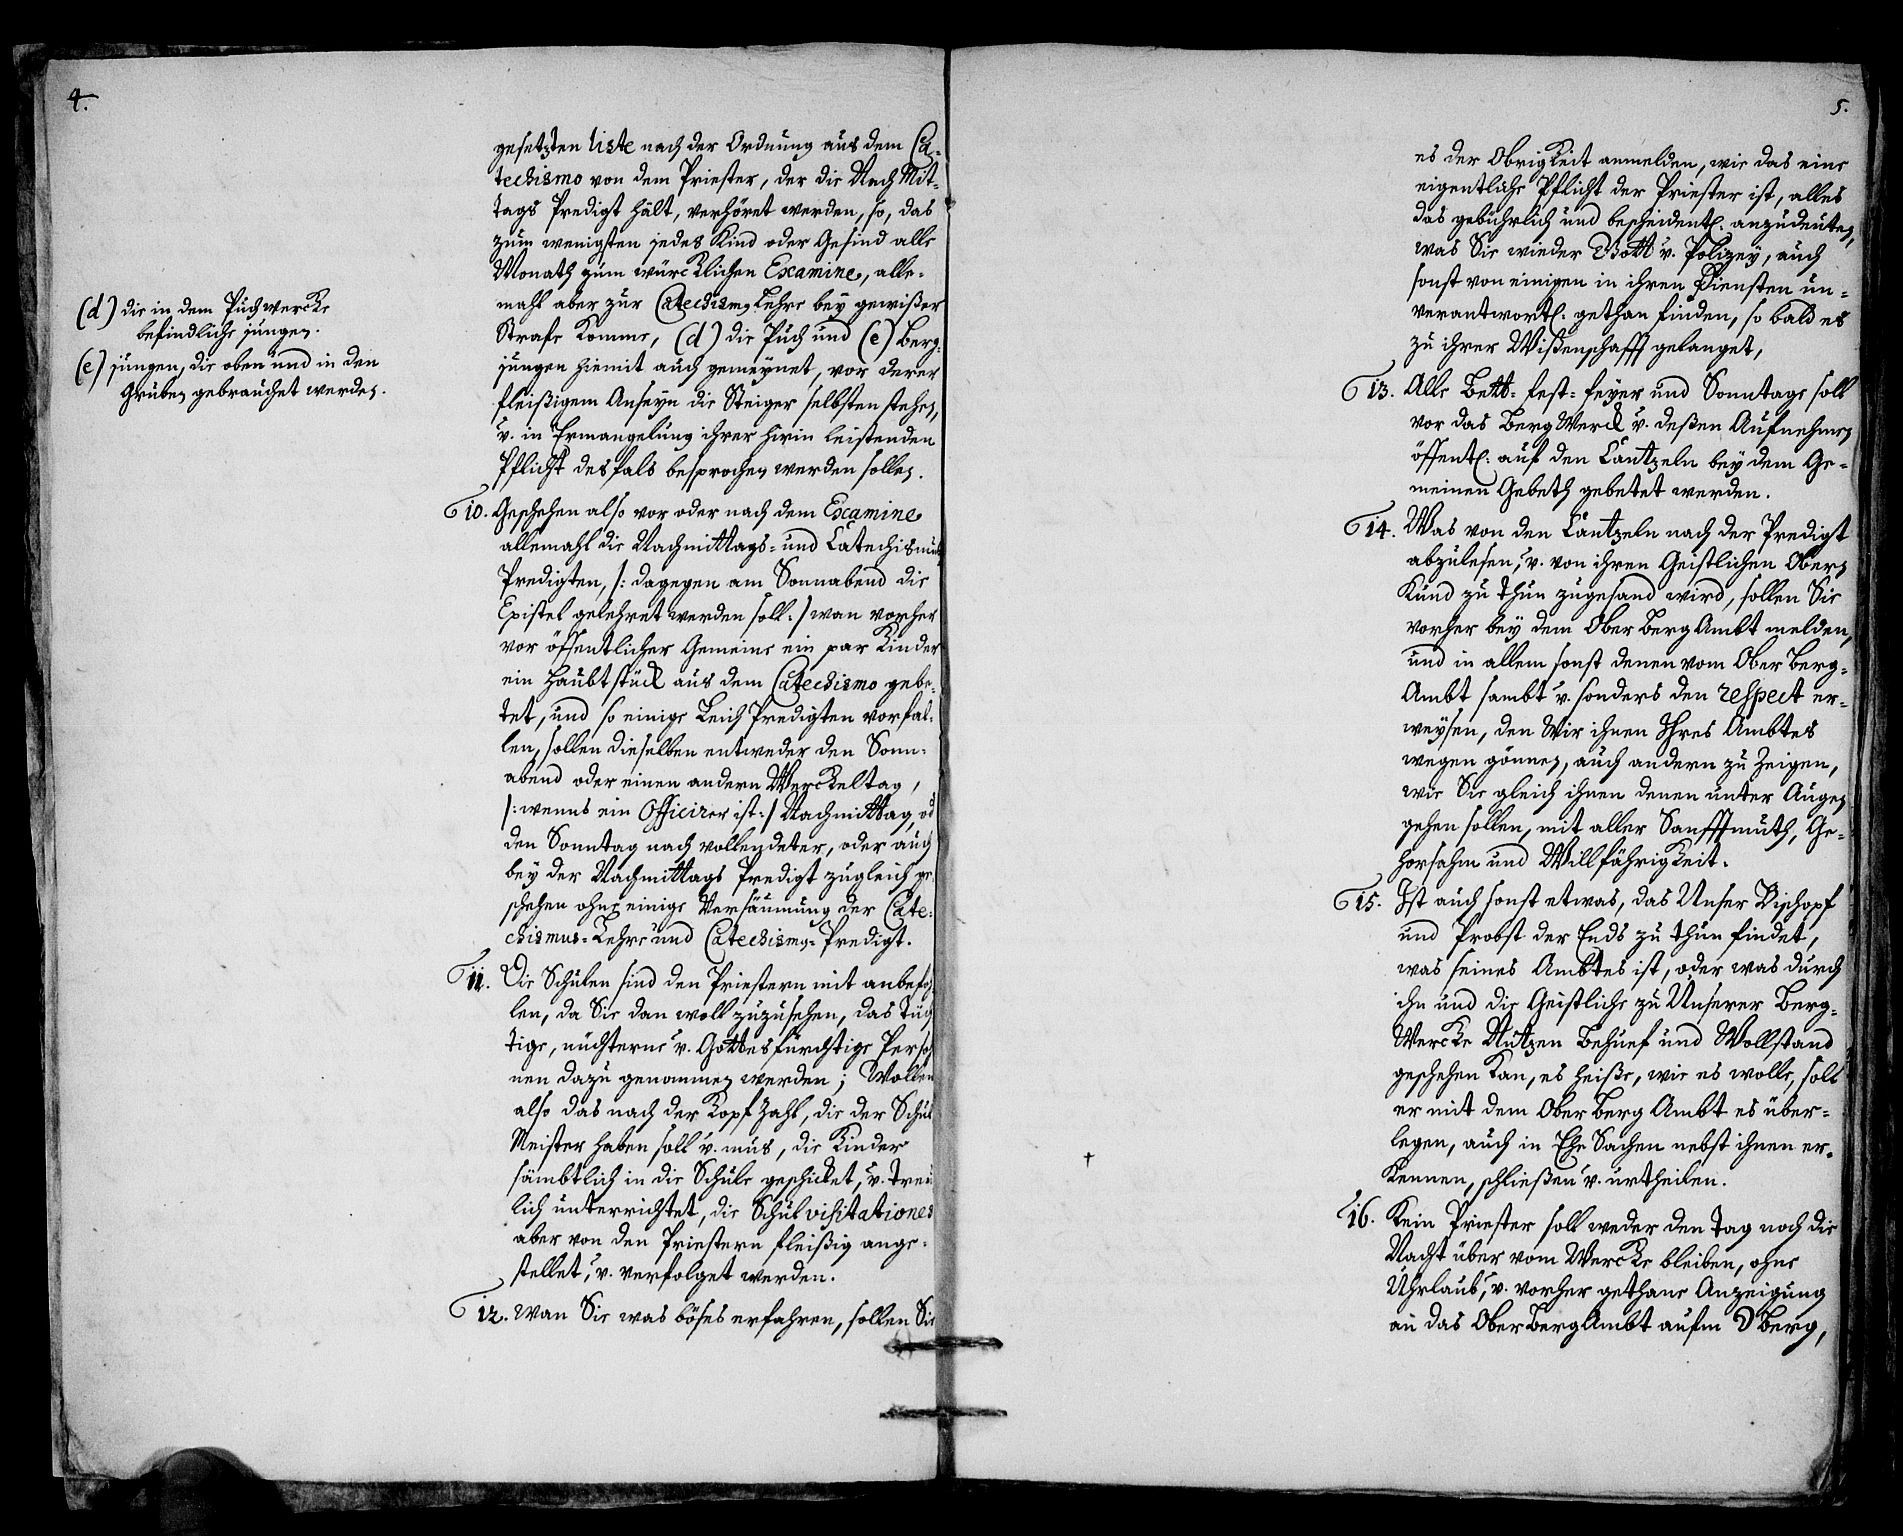 4.
gesetzten liste nach der Ordnung aus dem Ca-
techismo von dem Priester, der die Nach Mit-
tags Predigt hält, verhöret werden, so, das
zum wenigsten jedes Kind oder Gesind alle
Monath zum würcklichen Examine, alle-
mahl aber zur Catechismg Lehre bey gewißer
Strafe komme, (d) die Puch und (e) Berg-
jungen hiemit auch gemeynet, vor derer
fleißigem Anseyn die Steiger selbsten stehen,
v. in Ermangelung ihrer hirin leistenden
Pflicht desfals besprochen werden sollen.
(d) die in dem Puchwercke
befindliche jungen.
(e) jungen, die oben und in den
Gruben gebrauchet werden.
10. Geschehen also vor oder nach dem Examine
allemahl die Nachmittags- und Catechismus
Predigten, /: dagegen am Sonnabend die
Epistel gelehret werden soll :/ wan vorher
vor öffentlicher Gemeine ein par Kinder
ein Haubtstück aus dem Catechismo gebe-
tet, und so einige Leich Predigten vorfal-
len, sollen dieselben entweder den Sonn-
abend oder einen andern Werckeltag,
/: wenns ein Officirer ist :/ Nachmittag, od
den Sonntag nach vollendeter, oder auch
bey der Nachmittags Predigt zugleich ge-
schehen ohne einige Versäumung der Cate-
chismus-Lehre und Catechismg-Predigt.
11. Die Schulen sind den Priestern mit anbefoh-
len, da Sie dan woll zuzusehen, das Tüg
tige, nüchterne v. Gottesfürchtige Perso-
nen dazu genommen werden; Wollen
also das nach der Kopf Zahl, die der Schul
Meister haben soll v. mus, die Kinder
sämbtlich in die Schule geschicket, v. treu
lich unterrichtet, die Schul visitationes
aber von den Priestern fleißig ange-
stellet, v. verfolget werden.
12. Wan Sie was böses erfahren, sollen Sie
5.
es der Obrigkeit anmelden, wie das eine
eigentliche Pflicht der Priester ist, alles
das gebührlich und bescheidentl. anzudeuten,
was Sie wieder Gott v. Polizey, auch
sonst von einigen in ihren Diensten un-
verantwortl. gethan finden, so bald es
zu ihrer Wißenschafft gelanget,
13. Alle Bett- fest- feyer und Sonntage soll
vor das Berg Werck v. deßen Aufnehmen
öffentl. auf den Cantzeln bey dem Ge-
meinen Gebeth gebetet werden.
14. Was von den Cantzeln nach der Predigt
abzulesen, v. von ihren Geistlichen Obern
Kund zu thun zugesand wird, sollen Sie
vorher bey dem Ober Berg Ambt melden,
und in allem sonst denen vom Ober Berg-
Ambt sambt v. sonders den respect er-
weysen, den Wir ihnen Ihres Ambtes
wegen gönnen, auch andern zu Zeigen,
wie Sie gleich ihnen denen unter Augen
gehen sollen, mit aller Sanfftmuth, Ge-
horsahm und Willfährigkeit.
15. Ist auch sonst etwas, das Unser Bischopf
und Probst der Ends zu thun findet,
was seines Ambtes ist, oder was durch
ihn und die Geistliche zu Unserer Berg-
Wercke Nutzen Behuef und Wollstand
geschehen kan, es heiße, wie es wolle, soll
er mit dem Ober Berg Ambt es über-
legen, auch in Ehe Sachen nebst ihnen er-
kennen, schließen v. urtheilen.
16. Kein Priester soll weder den Tag noch die
Nacht über vom Wercke bleiben, ohne
Uhrlaub, v. vorher gethane Anzeigung
an das Ober Berg Ambt aufm Berg,